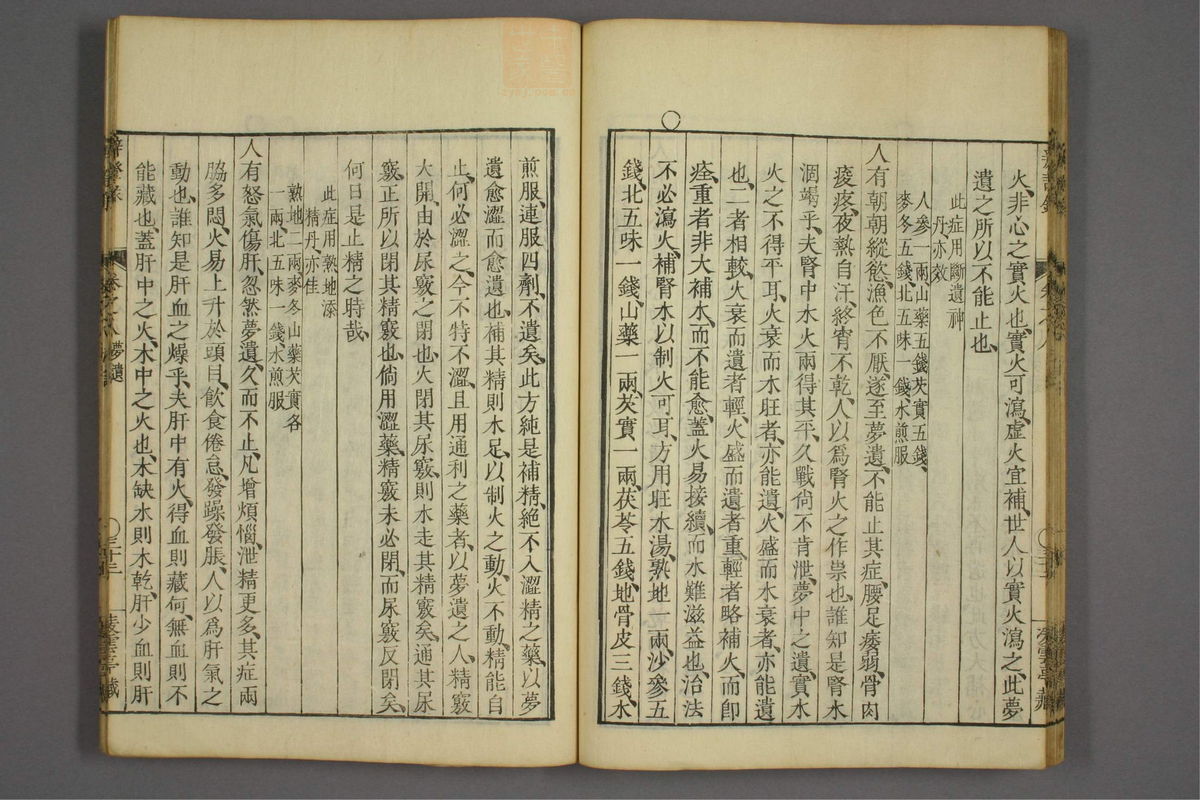 火非心之實火也實火可瀉虛火宜補世人以實火瀉之此夢
遺之所以不能止也
此症用斷遺神
丹亦效
人參一兩山藥五錢芡實五錢
麥冬五錢北五味一錢水煎服
人有朝朝縱慾漁色不厭遂至夢遺不能止其症腰足痿弱骨肉
痠疼夜熱自汗終宵不乾人以爲腎火之作祟也誰知是腎水
涸竭乎夫腎中水火兩得其平久戰尙不肯泄夢中之遺實水
火之不得平耳火衰而水旺者亦能遺火盛而水衰者亦能遺
也二者相較火衰而遺者輕火盛而遺者重輕者略補火而卽
痊重者非大補水而不能愈蓋火易接續而水難滋益也治法
不必瀉火補腎水以制火可耳方用旺水湯熟地一兩沙參五
錢北五味一錢山藥一兩芡實一兩茯苓五錢地骨皮三錢水
煎服連服四劑不遺矣此方純是補精絕不入澀精之藥以夢
遺愈澀而愈遺也補其精則水足以制火之動火不動精能自
止何必澀之今不特不澀且用通利之藥者以夢遺之人精竅
大開由於尿竅之閉也火閉其尿竅則水走其精竅矣通其尿
竅正所以閉其精竅也倘用澀藥精竅未必閉而尿竅反閉矣
何日是止精之時哉
此症用熟地添
精丹亦佳
熟地二兩麥冬山藥芡實各
一兩北五味一錢水煎服
人有怒氣傷肝忽然夢遺久而不止凡增煩惱泄精更多其症兩
脇多悶火易上升於頭目飲食倦怠發躁發脹人以爲肝氣之
動也誰知是肝血之燥乎夫肝中有火得血則藏何無血則不
能藏也蓋肝中之火木中之火也木缺水則木乾肝少血則肝
卷之八
夢遺